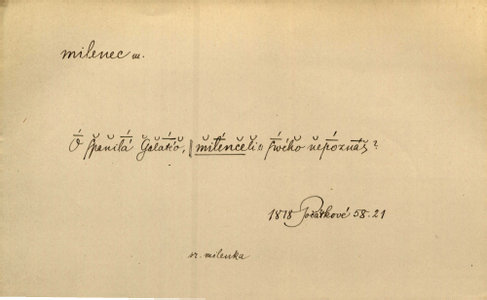 milenec m.
Ó spanilá Galatéo, ‖ milencelis swého nepoznáš?
1818 Počátkové 58.21
sr. milenka